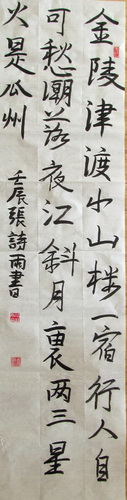 金陵津渡小山楼一宿行人自
可愁潮落夜江斜月里两三星
火是瓜州
壬辰張詩雨書